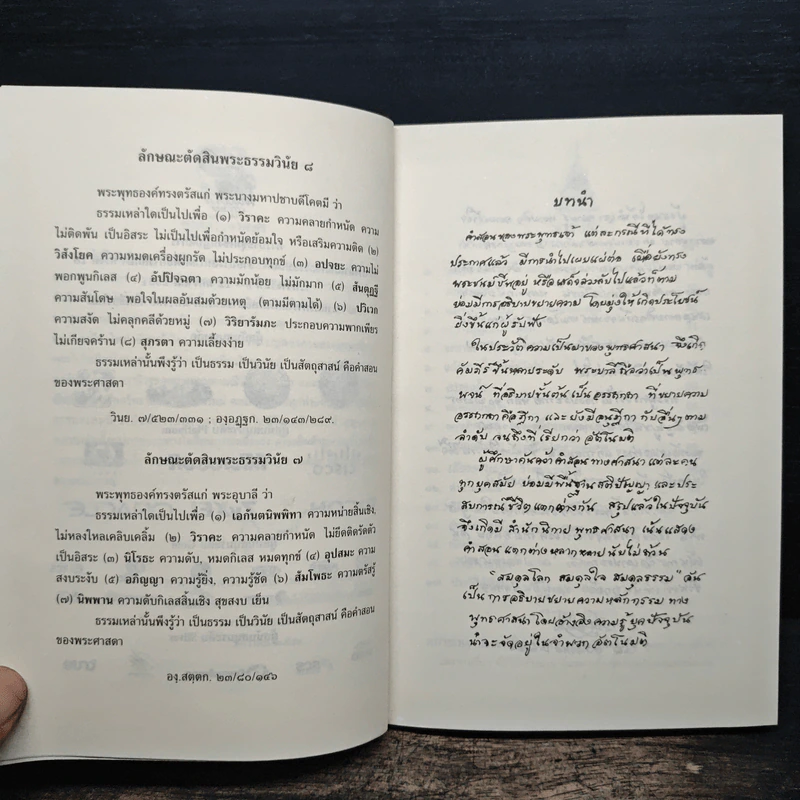 ลักษณะตัดสินพระธรรมวินัย ๘
พระพุทธองค์ทรงตรัสแก่ พระนางมหาปชาบดีโคตมี ว่า
ธรรมเหล่าใดเป็นไปเพื่อ (๑) วิราคะ ความคลายกำหนัด ความ
ไม่ติดพัน เป็นอิสระ ไม่เป็นไปเพื่อกำหนัดย้อมใจ หรือเสริมความติด (๒)
วิสังโยค ความหมดเครื่องผูกรัด ไม่ประกอบทุกข์ (๓) อปจยะ ความไม่
พอกพูนกิเลส (๔) อัปปิจฉตา ความมักน้อย ไม่มักมาก (๕) สันตุฏฐี
ความสันโดษ พอใจในผลอันสมด้วยเหตุ (ตามมีตามได้) (๖) ปวิเวก
ความสงัด ไม่คลุกคลีด้วยหมู่ (๗) วิริยารัมภะ ประกอบความพากเพียร
ไม่เกียจคร้าน (๘) สุภรตา ความเลี้ยงง่าย
ธรรมเหล่านั้นพึงรู้ว่า เป็นธรรม เป็นวินัย เป็นสัตถุสาสน์ คือคำสอน
ของพระศาสดา
วินย. ๗/๕๒๓/๓๓๑ ; องฺอฏฺฐก. ๒๓/๑๔๓/๒๘๙.
ลักษณะตัดสินพระธรรมวินัย ๗
พระพุทธองค์ทรงตรัสแก่ พระอุบาลี ว่า
ธรรมเหล่าใดเป็นไปเพื่อ (๑) เอกันตนิพพิทา ความหน่ายสิ้นเชิง,
ไม่หลงใหลเคลิบเคลิ้ม (๒) วิราคะ ความคลายกำหนัด ไม่ยึดติดรัดตัว
เป็นอิสระ (๓) นิโรธะ ความดับ, หมดกิเลส หมดทุกข์ (๔) อุปสมะ ความ
สงบระงับ (๕) อภิญญา ความรู้ยิ่ง, ความรู้ชัด (๖) สัมโพธะ ความตรัสรู้
(๗) นิพพาน ความดับกิเลสสิ้นเชิง สุขสงบ เย็น
ธรรมเหล่านั้นพึงรู้ว่า เป็นธรรม เป็นวินัย เป็นสัตถุสาสน์ คือคำสอน
ของพระศาสดา
องฺ.สตฺตก. ๒๓/๘๐/๑๔๖
บทนำ
คำสอนของพระพุทธเจ้า แต่ละกรณีที่ได้ทรง
ประกาศแล้ว มีการนำไปเผยแผ่ต่อ เมื่อยังทรง
พระชนม์ชีพอยู่ หรือเสด็จล่วงลับไปแล้วก็ตาม
ย่อมมีการอธิบายขยายความ โดยมุ่งให้เกิดประโยชน์
ยิ่งขึ้นแก่ผู้รับฟัง
ในประวัติความเป็นมาของพุทธศาสนา จึงเกิด
คัมภีร์ขึ้นหลายระดับ พระบาลีถือว่าเป็นพุทธ
พจน์ ที่อธิบายขั้นต้นเป็นอรรถกถา ที่ขยายความ
อรรถกถาคือฎีกา และยังมีอนุฎีกา กับอื่นๆตาม
ลำดับ จนถึงที่เรียกว่า อัตโนมติ
ผู้ศึกษาค้นคว้าคำสอนทางศาสนาแต่ละคน
ทุกยุคสมัย ย่อมมีพื้นฐานสติปัญญา และประ
สบการณ์ชีวิตแตกต่างกัน สรุปแล้วในปัจจุบัน
จึงเกิดมี สำนักนิกายพุทธศาสนา เน้นแสดง
คำสอนแตกต่างหลากหลายนัยไม่ถ้วน
"สมดุลโลก สมดุลใจ สมดุลธรรม" อัน
เป็นการอธิบายขยายความหลักกรรม ทาง
พุทธศาสนาโดยอ้างอิงความรู้ยุคปัจจุบัน
น่าจะจัดอยู่ในจำพวกอัตโนมติ